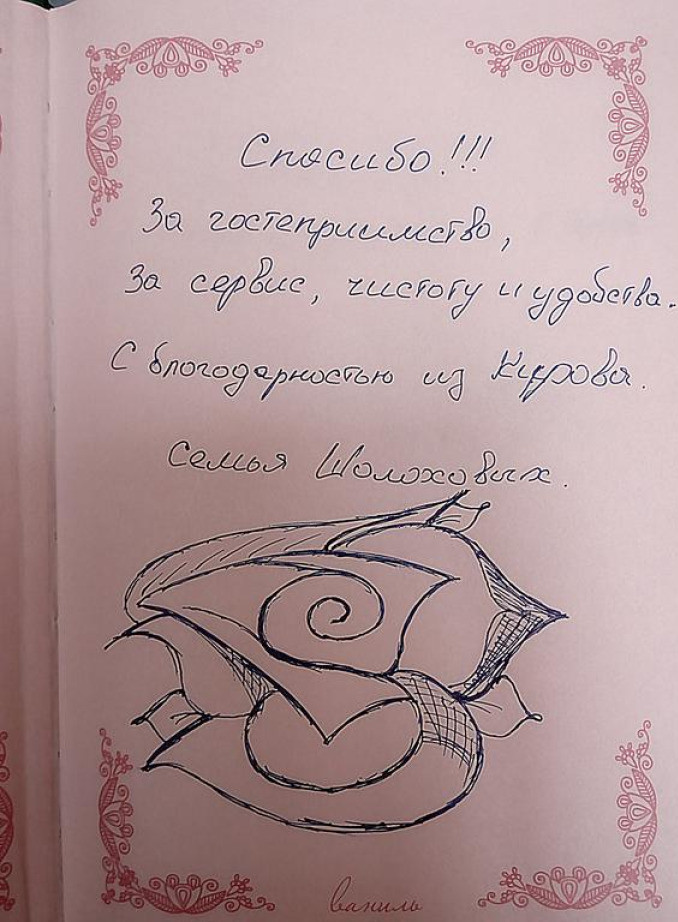 Спасибо!!!
За гостеприимство,
За сервис, чистоту и удобства.
С благодарностью из Кирова.
Семья Шолоховых.
ваниль